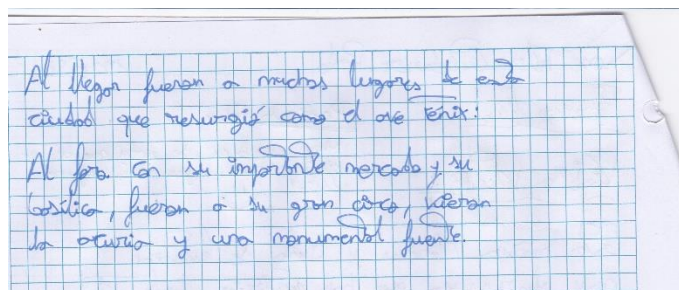 Al llegar fueron a muchos lugares de esta
ciudad que resurgió como el ave fénix:
Al foro con su importante mercado y su
basílica, fueron a su gran circo, vieron
la curia y una monumental fuente.